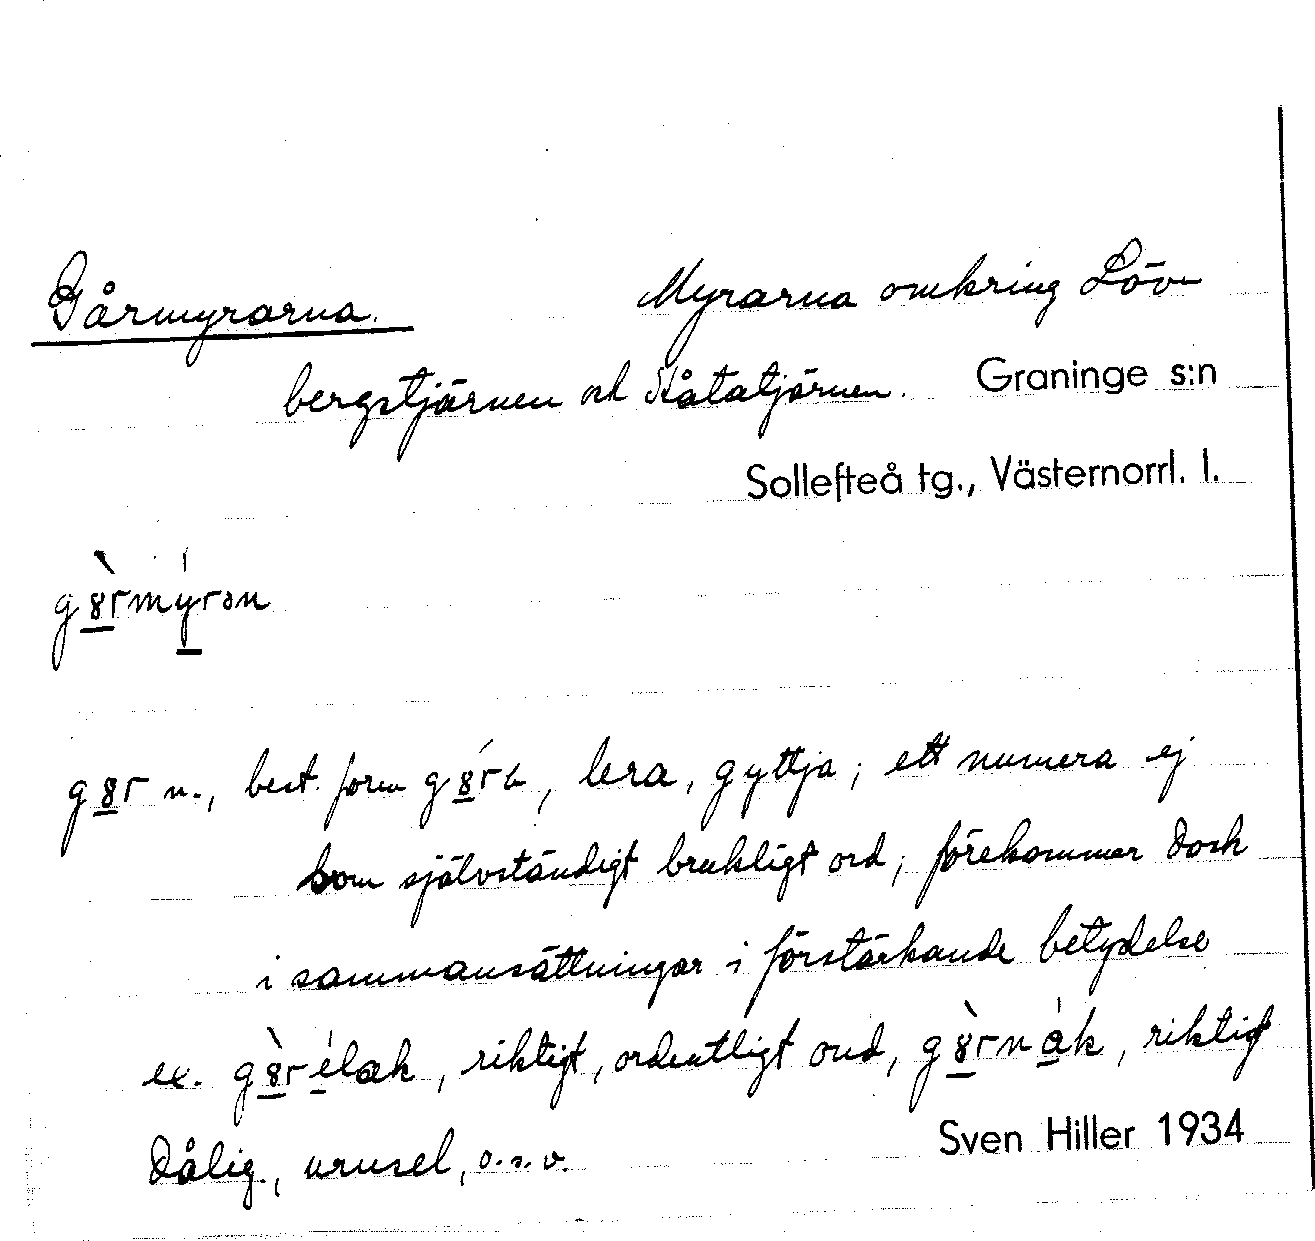 Gårmyrarna. Myrarna omkring Löv-
bergstjärnen och Kåtatjärnen. Graninge s:n
Sollefteå tg., Västernorrl. l.
g8̀rmýrɘn
g8r n., best. form g8́rɘ, lera, gyttja; ett numera ej
som självständigt brukligt ord; förekommer dock
i sammansättningar i förstärkande betydelse
ex. g8̀rélak, riktigt, ordentligt ond, g8̀rnák, riktigt
dålig, urusel, o.s.v. Sven Hiller 1934